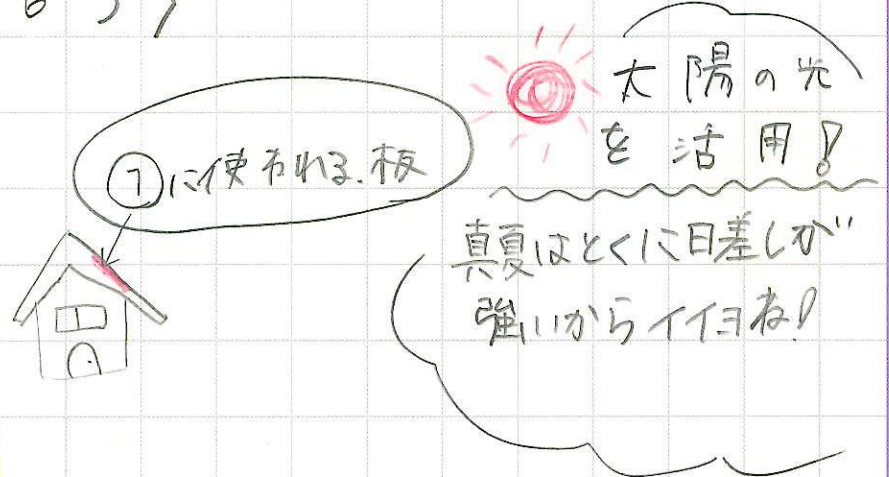 ⑦に使われる板
太陽の光
を活用!
真夏はとくに日差しが
強いからイイヨね!